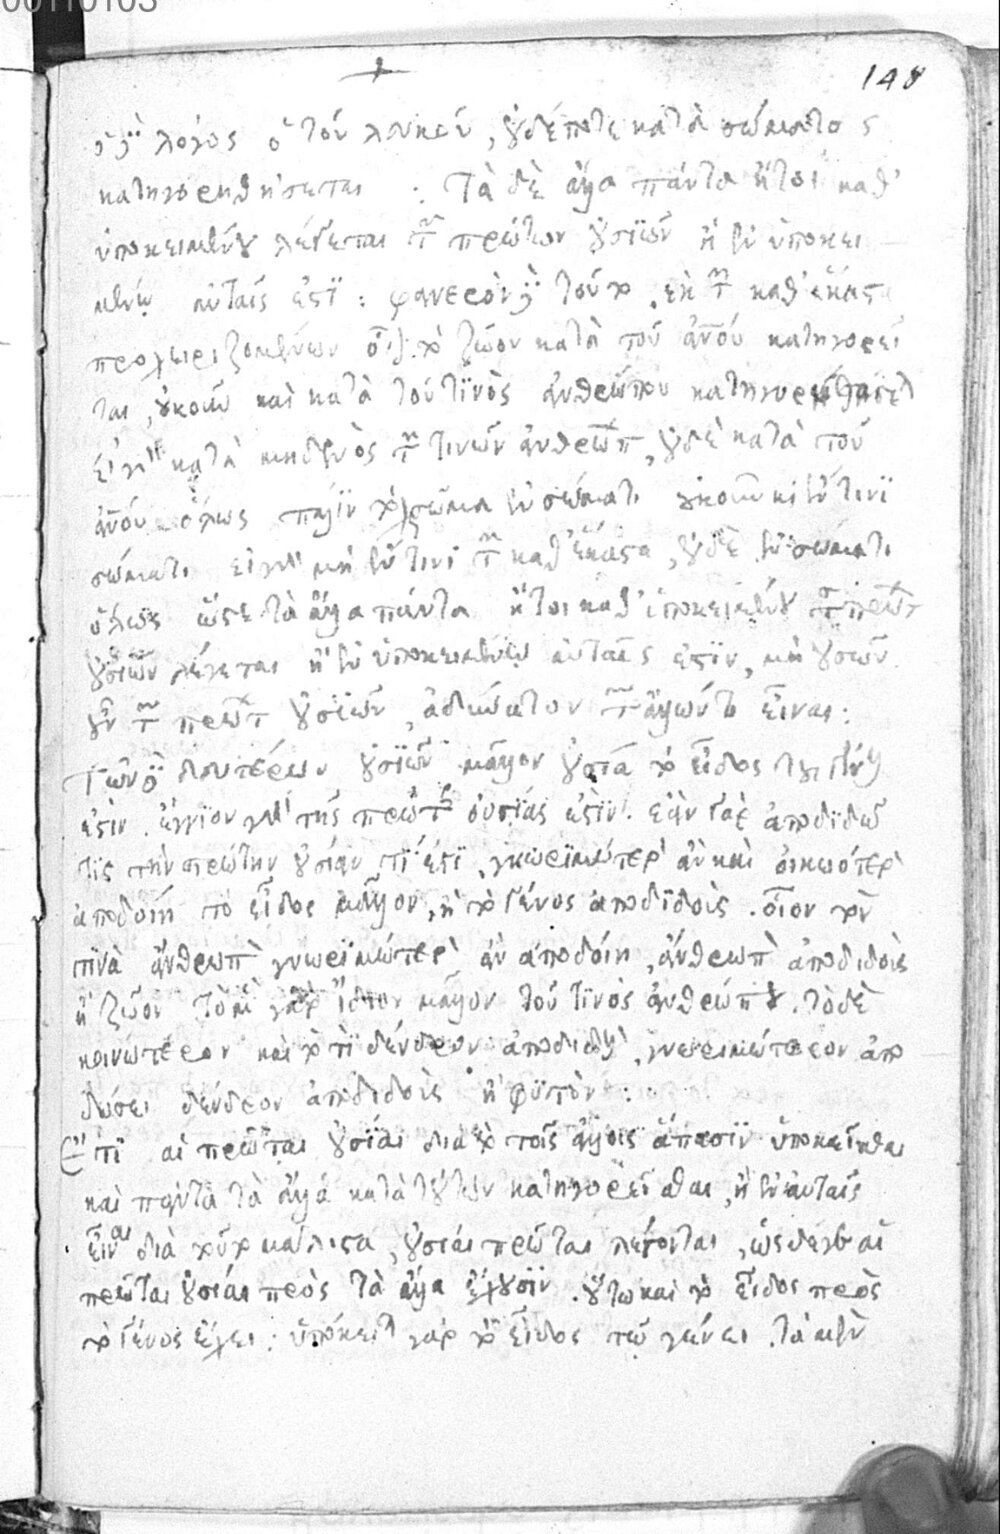 00110103
148
ὁ δὲ λόγος ὁ τοῦ λευκοῦ, οὐδέποτε κατὰ σώματος
κατηγορηθήσεται . Τὰ δὲ ἄλλα πάντα ἤτοι καθ'
ὑποκειμένου λέγεται τῶν πρώτων οὐσιῶν ἢ ἐν ὑποκει
μένῳ αὐταῖς ἐστὶ : φανερὸν δὲ τοῦτο ἐκ τῶν καθ' ἕκαστα
προχειριζομένων οἷον τὸ ζῶον κατὰ τοῦ ἀνου κατηγορεῖ
ται, οὐκοῦν καὶ κατὰ τοῦ τινὸς ἀνθρώπου κατηγορηθήσεται
εἰ γὰρ κατὰ μηδενὸς τῶν τινῶν ἀνθρώπων, οὐδὲ κατὰ τοῦ
ἀνου ὅλως πάλιν τὸ σῶμα ἐν σώματι οὐκοῦν καὶ ἐν τινὶ
σώματι εἰ γὰρ μὴ ἐν τινὶ τῶν καθ' ἕκαστα, οὐδὲ ἐν σώματι
ὅλως ὥστε τὰ ἄλλα πάντα ἤτοι καθ' ὑποκειμένου τῶν πρώτων
οὐσιῶν λέγεται ἢ ἐν ὑποκειμένῳ αὐταῖς ἐστὶν, μὴ οὐσῶν
οὖν τῶν πρώτων οὐσιῶν, ἀδύνατον τῶν ἄλλων τὶ εἶναι :
Τῶν δὲ δευτέρων οὐσιῶν μᾶλλον οὐσία τὸ εἶδος τοῦ γένους
ἐστὶν . ἔγγιον γὰρ τῆς πρώτης οὐσίας ἐστὶν . ἐὰν γὰρ ἀποδιδῶ
τὶς τὴν πρώτην οὐσίαν τί ἐστὶ, γνωριμώτερον ἂν καὶ οἰκειότερον
ἀποδοίη τὸ εἶδος μᾶλλον, ἢ τὸ γένος ἀποδιδοὺς . οἷον τὸν
τινὰ ἄνθρωπον γνωριμώτερον ἂν ἀποδοίη, ἄνθρωπον ἀποδιδοὺς
ἢ ζῶον τὸ μὲν γὰρ ἴδιον μᾶλλον τοῦ τινὸς ἀνθρώπου . τὸ δὲ
κοινώτερον καὶ τὸ τὶ δένδρον ἀποδιδοὺς, γνωριμώτερον ἀπο
δώσει δένδρον ἀποδιδοὺς ἢ φυτὸν :
Ἔτι αἱ πρῶται οὐσίαι διὰ τὸ τοῖς ἄλλοις ἅπασιν ὑποκεῖσθαι
καὶ πάντα τὰ ἄλλα κατὰ τούτων κατηγορεῖσθαι, ἢ ἐν αὐταῖς
εἶναι διὰ τοῦτο μάλιστα, οὐσίαι πρῶται λέγονται, ὡς δέ γε αἱ
πρῶται οὐσίαι πρὸς τὰ ἄλλα ἔχουσιν . οὕτω καὶ τὸ εἶδος πρὸς
τὸ γένος ἔχει : ὑπόκειται γὰρ τὸ εἶδος τῷ γένει τὰ μὲν